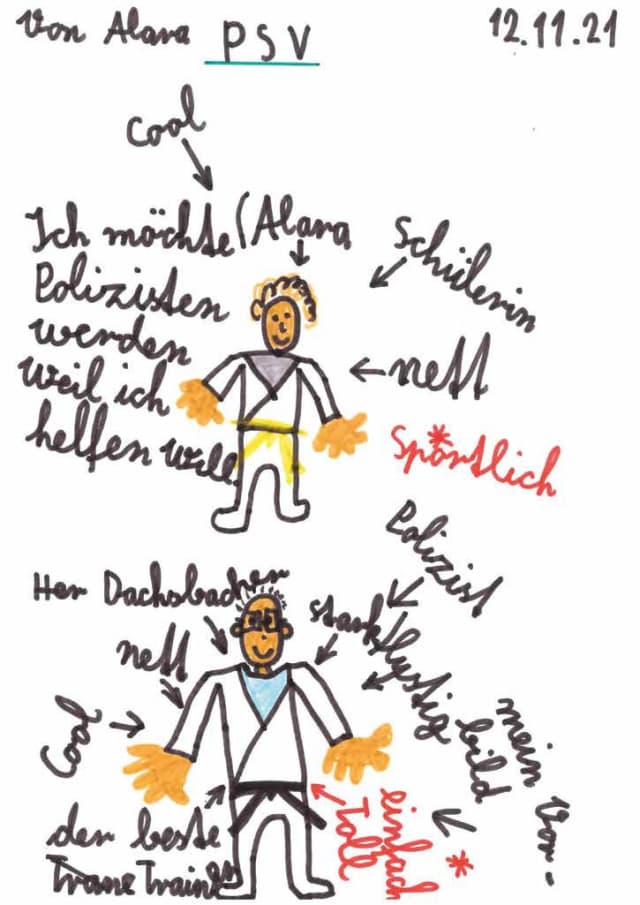 Von Alara PSV 12.11.21
Cool
Ich möchte
Polizisten
werden
weil ich
helfen will
(Alara
Schülerin
nett
Sportlich
Her Dachsbacher
Polizist
stark
lustig
nett
Cool
mein Vor-
bild
der beste
Trane Trainer
einfach
Toll